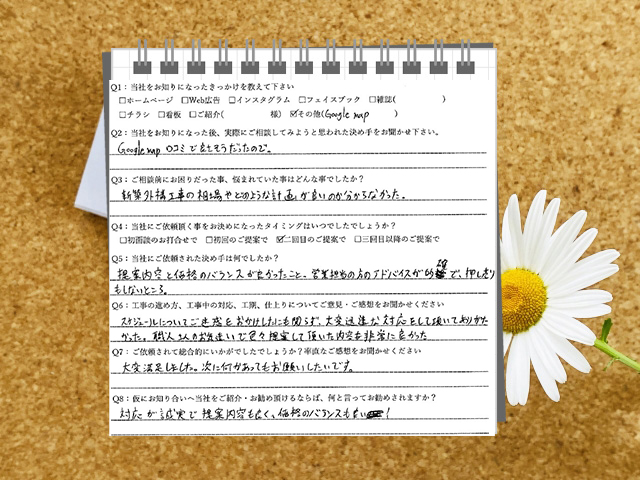 Q1：当社をお知りになったきっかけを教えて下さい
□ホームページ □Web広告 □インスタグラム □フェイスブック □雑誌(　　　　)
□チラシ □看板 □ご紹介(　　　　様) ☑その他(Google map　　)
Q2：当社をお知りになった後、実際にご相談してみようと思われた決め手をお聞かせ下さい。
Google map 口コミで良さそうだったので。
Q3：ご相談前にお困りだった事、悩まれていた事はどんな事でしたか？
新築外構工事の相場やどのような計画が良いのか分からなかった。
Q4：当社にご依頼頂く事をお決めになったタイミングはいつでしたでしょうか？
□初面談のお打合せで □初回のご提案で ☑二回目のご提案で □三回目以降のご提案で
Q5：当社にご依頼された決め手は何でしたか？
提案内容と価格のバランスが良かったこと、営業担当の方のアドバイスが的確で、押し売り
もしないところ。
Q6：工事の進め方、工事中の対応、工期、仕上りについてご意見・ご感想をお聞かせください
スケジュールについてご迷惑をおかけしたにも関らず、大変迅速な対応をして頂いてありがた
かった。職人さんのお気遣いで色々提案して頂いた内容も非常に良かった
Q7：ご依頼されて総合的にいかがでしたでしょうか？率直なご感想をお聞かせください
大変満足しました。次に何かあってもお願いしたいです。
Q8：仮にお知り合いへ当社をご紹介・お勧め頂けるならば、何と言ってお勧めされますか？
対応が誠実で提案内容も良く、価格のバランスも良い！